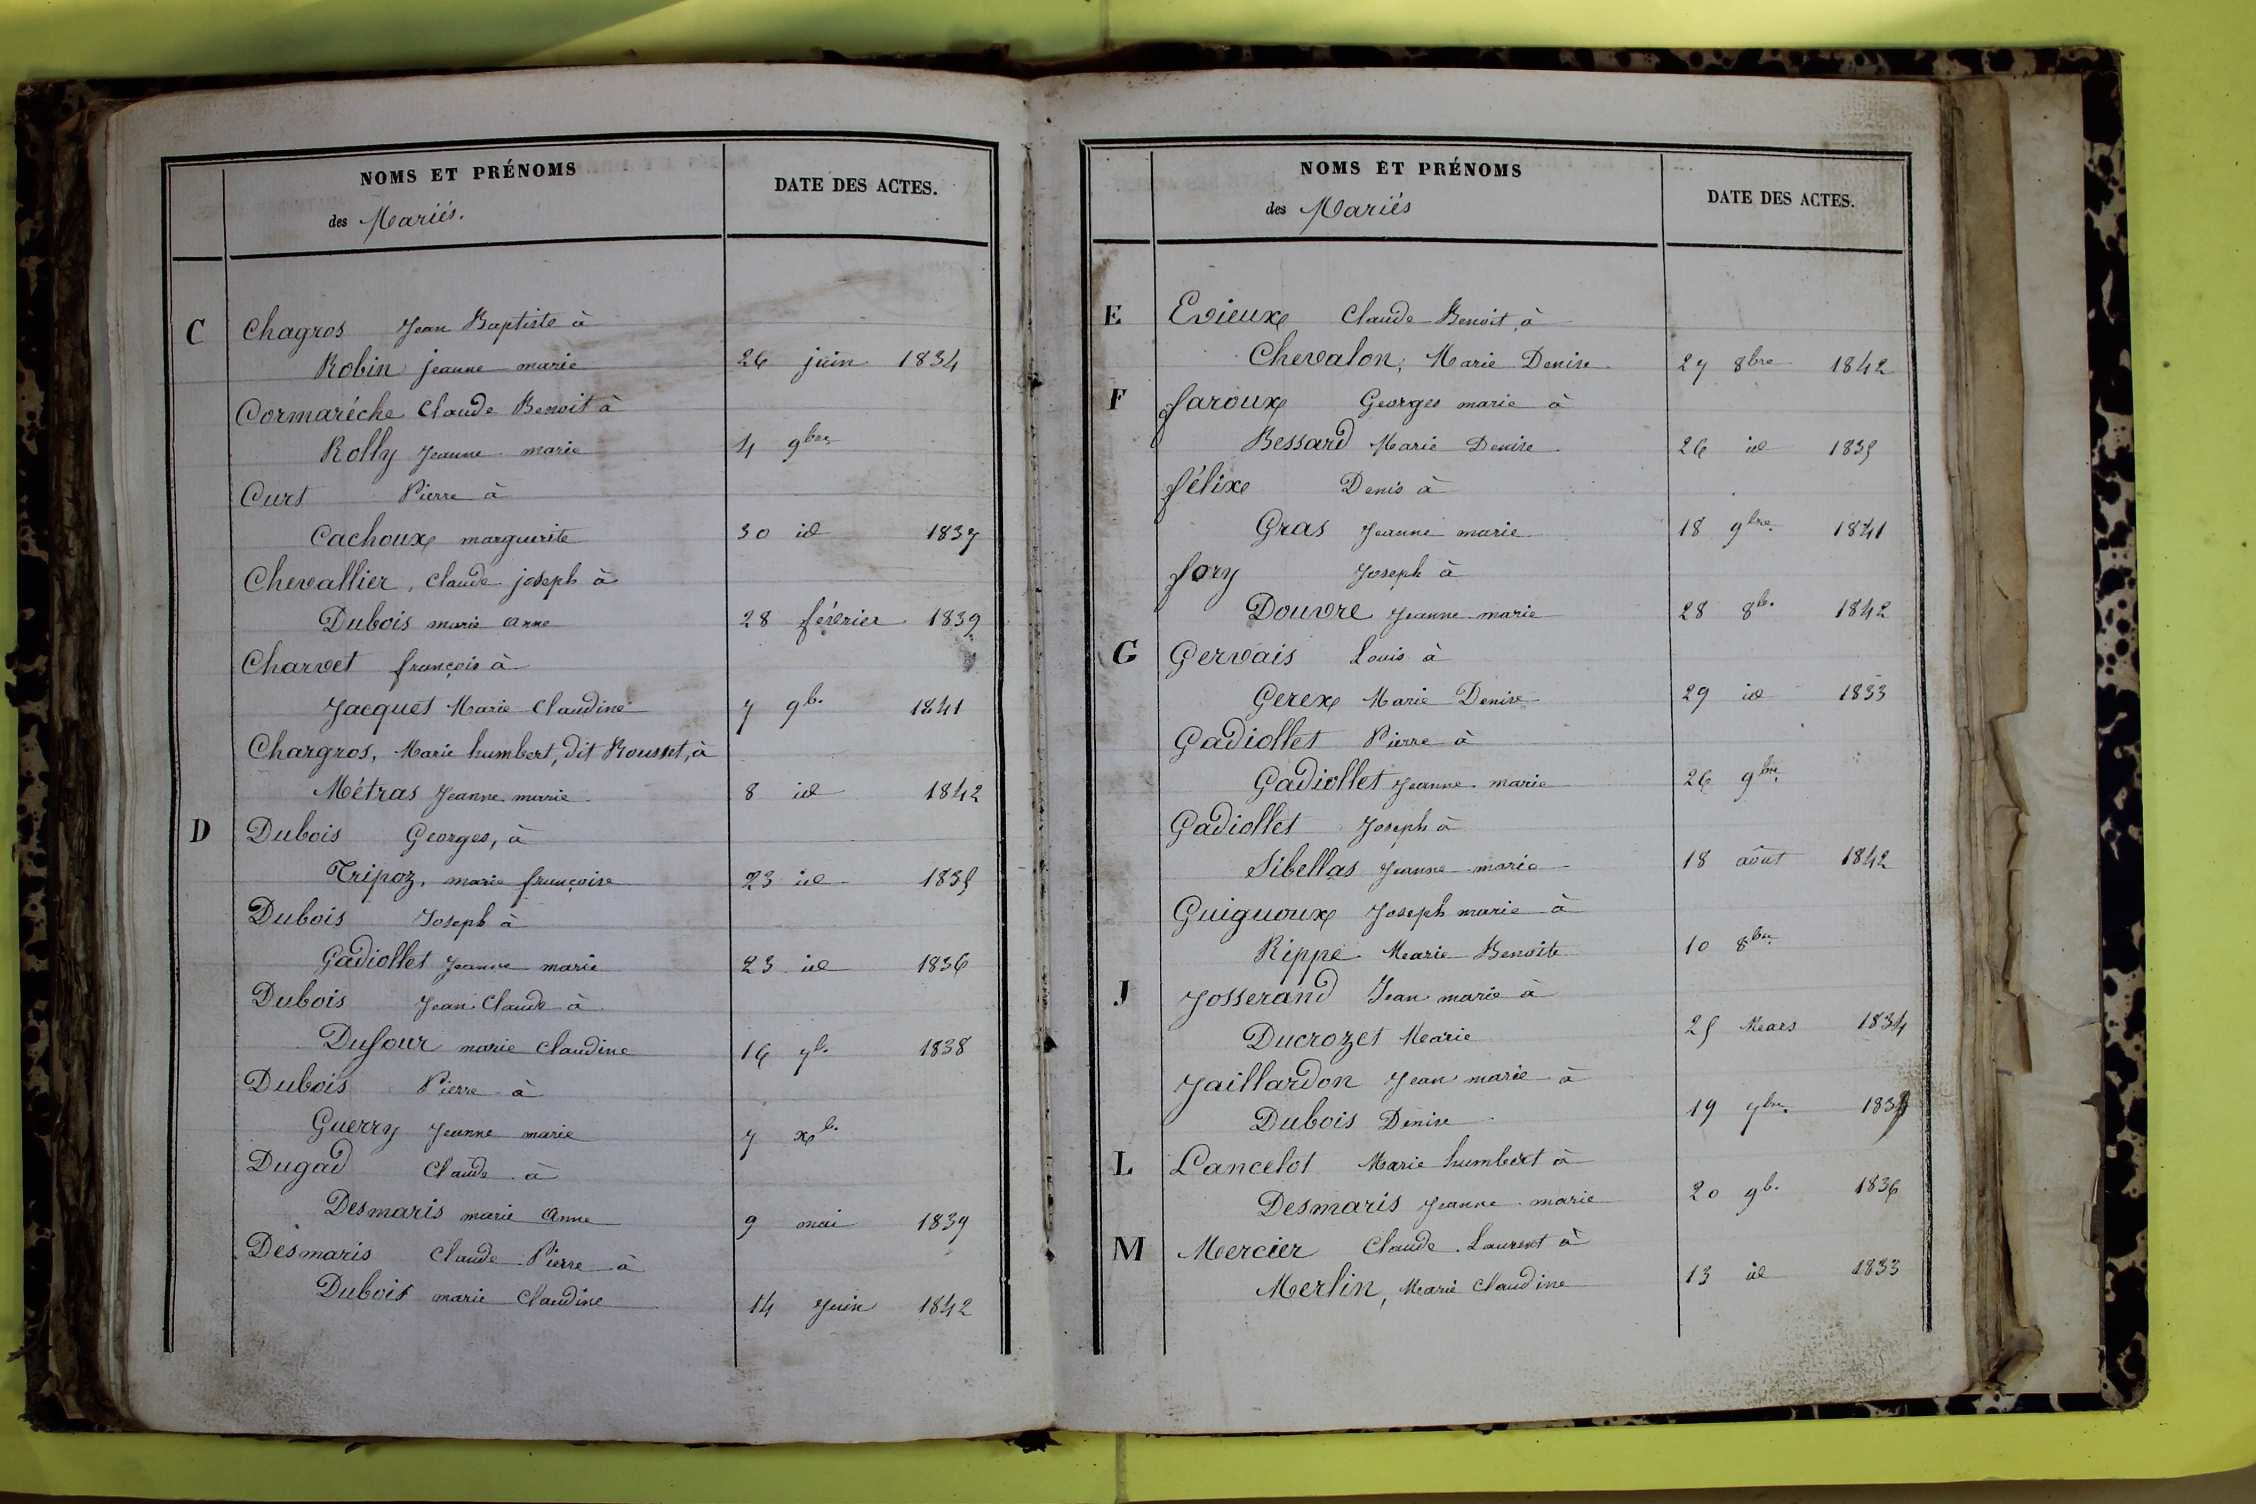 NOMS ET PRÉNOMS
des Mariés.
DATE DES ACTES.
C Chagros Jean Baptiste à
Robin jeanne marie 26 juin 1834
Cormaréche Claude Benoit à
Rolly Jeanne marie 4 9bre
Curt Pierre à
Cachoux marguerite 30 id 1837
Chevallier, Claude joseph à
Dubois marie anne 28 février 1839
Charvet françois à
Jacquet Marie Claudine 7 9b. 1841
Chargros, Marie humbert, dit Rousset, à
Métras Jeanne marie 8 id 1842
D Dubois Georges, à
Tripoz, marie françoise 23 id 1835
Dubois Joseph à
Gadiollet Jeanne marie 23 id 1836
Dubois Jean Claude à
Dufour marie Claudine 16 7b. 1838
Dubois Pierre à
Guerry Jeanne marie 7 xb.
Dugad Claude à
Desmaris marie Anne 9 mai 1839
Desmaris Claude Pierre à
Dubois marie Claudine 14 Juin 1842
NOMS ET PRÉNOMS
des Mariés
DATE DES ACTES.
E Evieux Claude Benoit, à
Chevalon, Marie Denise 27 8bre 1842
F faroux Georges marie à
Bessard Marie Denise 26 id 1835
félix Denis à
Gras Jeanne marie 18 9bre. 1841
fory Joseph à
Douvre Jeanne marie 28 8b. 1842
G Gervais Louis à
Gerex Marie Denise 29 id 1833
Gadiollet Pierre à
Gadiollet Jeanne marie 26 9bre.
Gadiollet Joseph à
Sibellas Jeanne marie 18 août 1842
Guiguoux Joseph marie à
Rippe Marie Benoite 10 8bre
J Josserand Jean marie à
Ducrozet Marie 25 Mars 1834
Jaillardon Jean marie à
Dubois Denise 19 7bre.
L Lancelot Marie humbert à
Desmaris Jeanne marie 20 9b. 1836
M Mercier Claude Laurent à
Merlin, Marie Claudine 13 id 1833